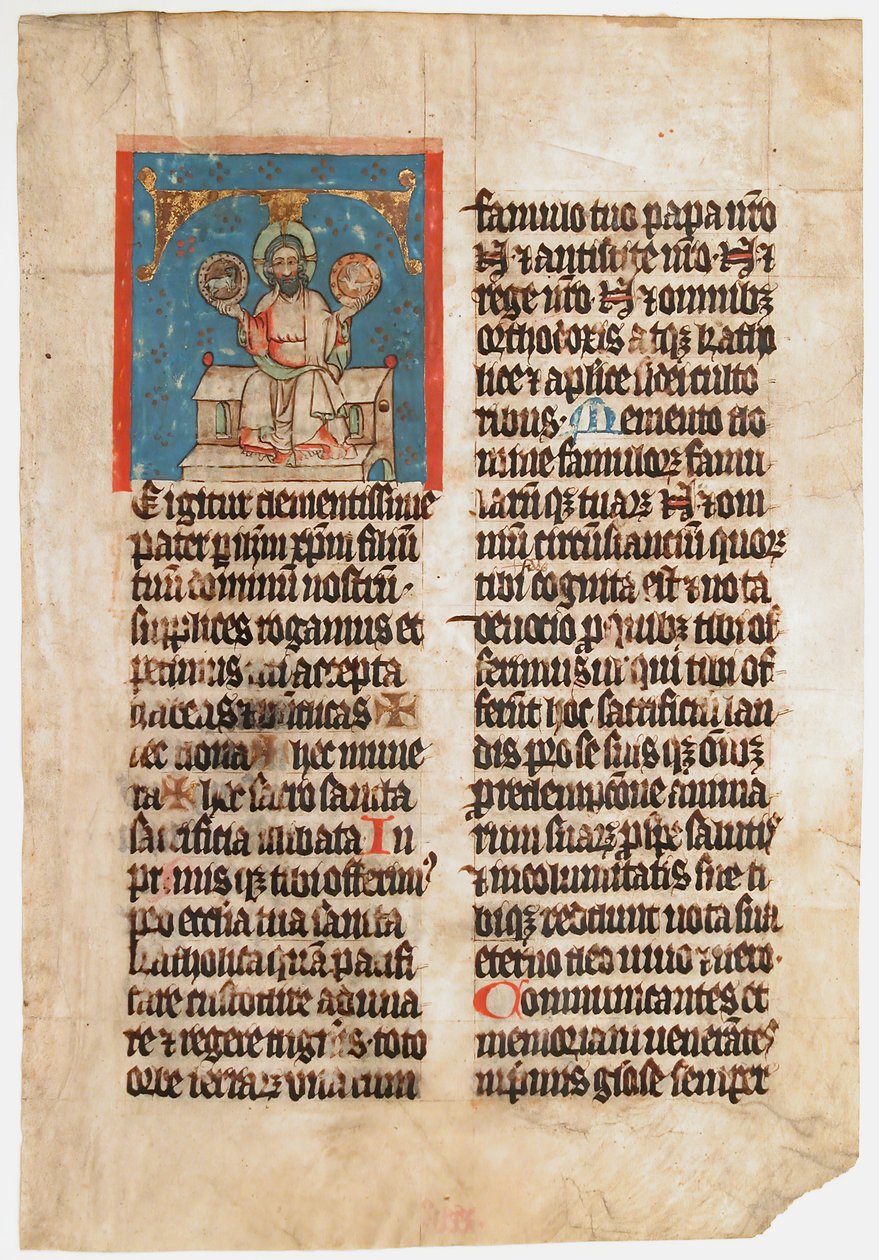 E igitur clementissime
pater ꝑ ihm̄ xp̄m filiū
tuū dominū nostrū·
supplices rogamus et
petimus uti accepta
habeas ⁊ bn̄dicas ✠
hec dona ✠ hec mune
ra ✠ hec sancta
sacrificia illibata In
primis qꝫ tibi offerimꝰ
pro ecclia tua sancta
katholica quā pacifi
care custodire aduna
re ⁊ regere digneris toto
orbe terraꝝ vna cum
famulo tuo papa nr̄o
N ⁊ antistite nr̄o N ⁊
rege nr̄o N ⁊ omnibꝫ
orthodoxis atqꝫ katho
lice ⁊ aplice fidei culto
ribus· Memento do
mine famuloꝝ famu
larūqꝫ tuaꝝ N ⁊ om
niū circūstanciū quoꝝ
tibi cognita est ⁊ nota
deuocio ꝓ quibꝫ tibi of
ferimus uł qui tibi of
ferūt hoc sacrificiū lau
dis pro se suisqꝫ om̄ibꝫ
pro redempcōne anima
rum suaꝝ ꝓ spe salutis
⁊ incolumitatis sue ti
biqꝫ reddunt uota sua
eterno deo uiuo ⁊ uero·
Communicantes et
memoriam uenerātes
inpmis gl̄ose semper